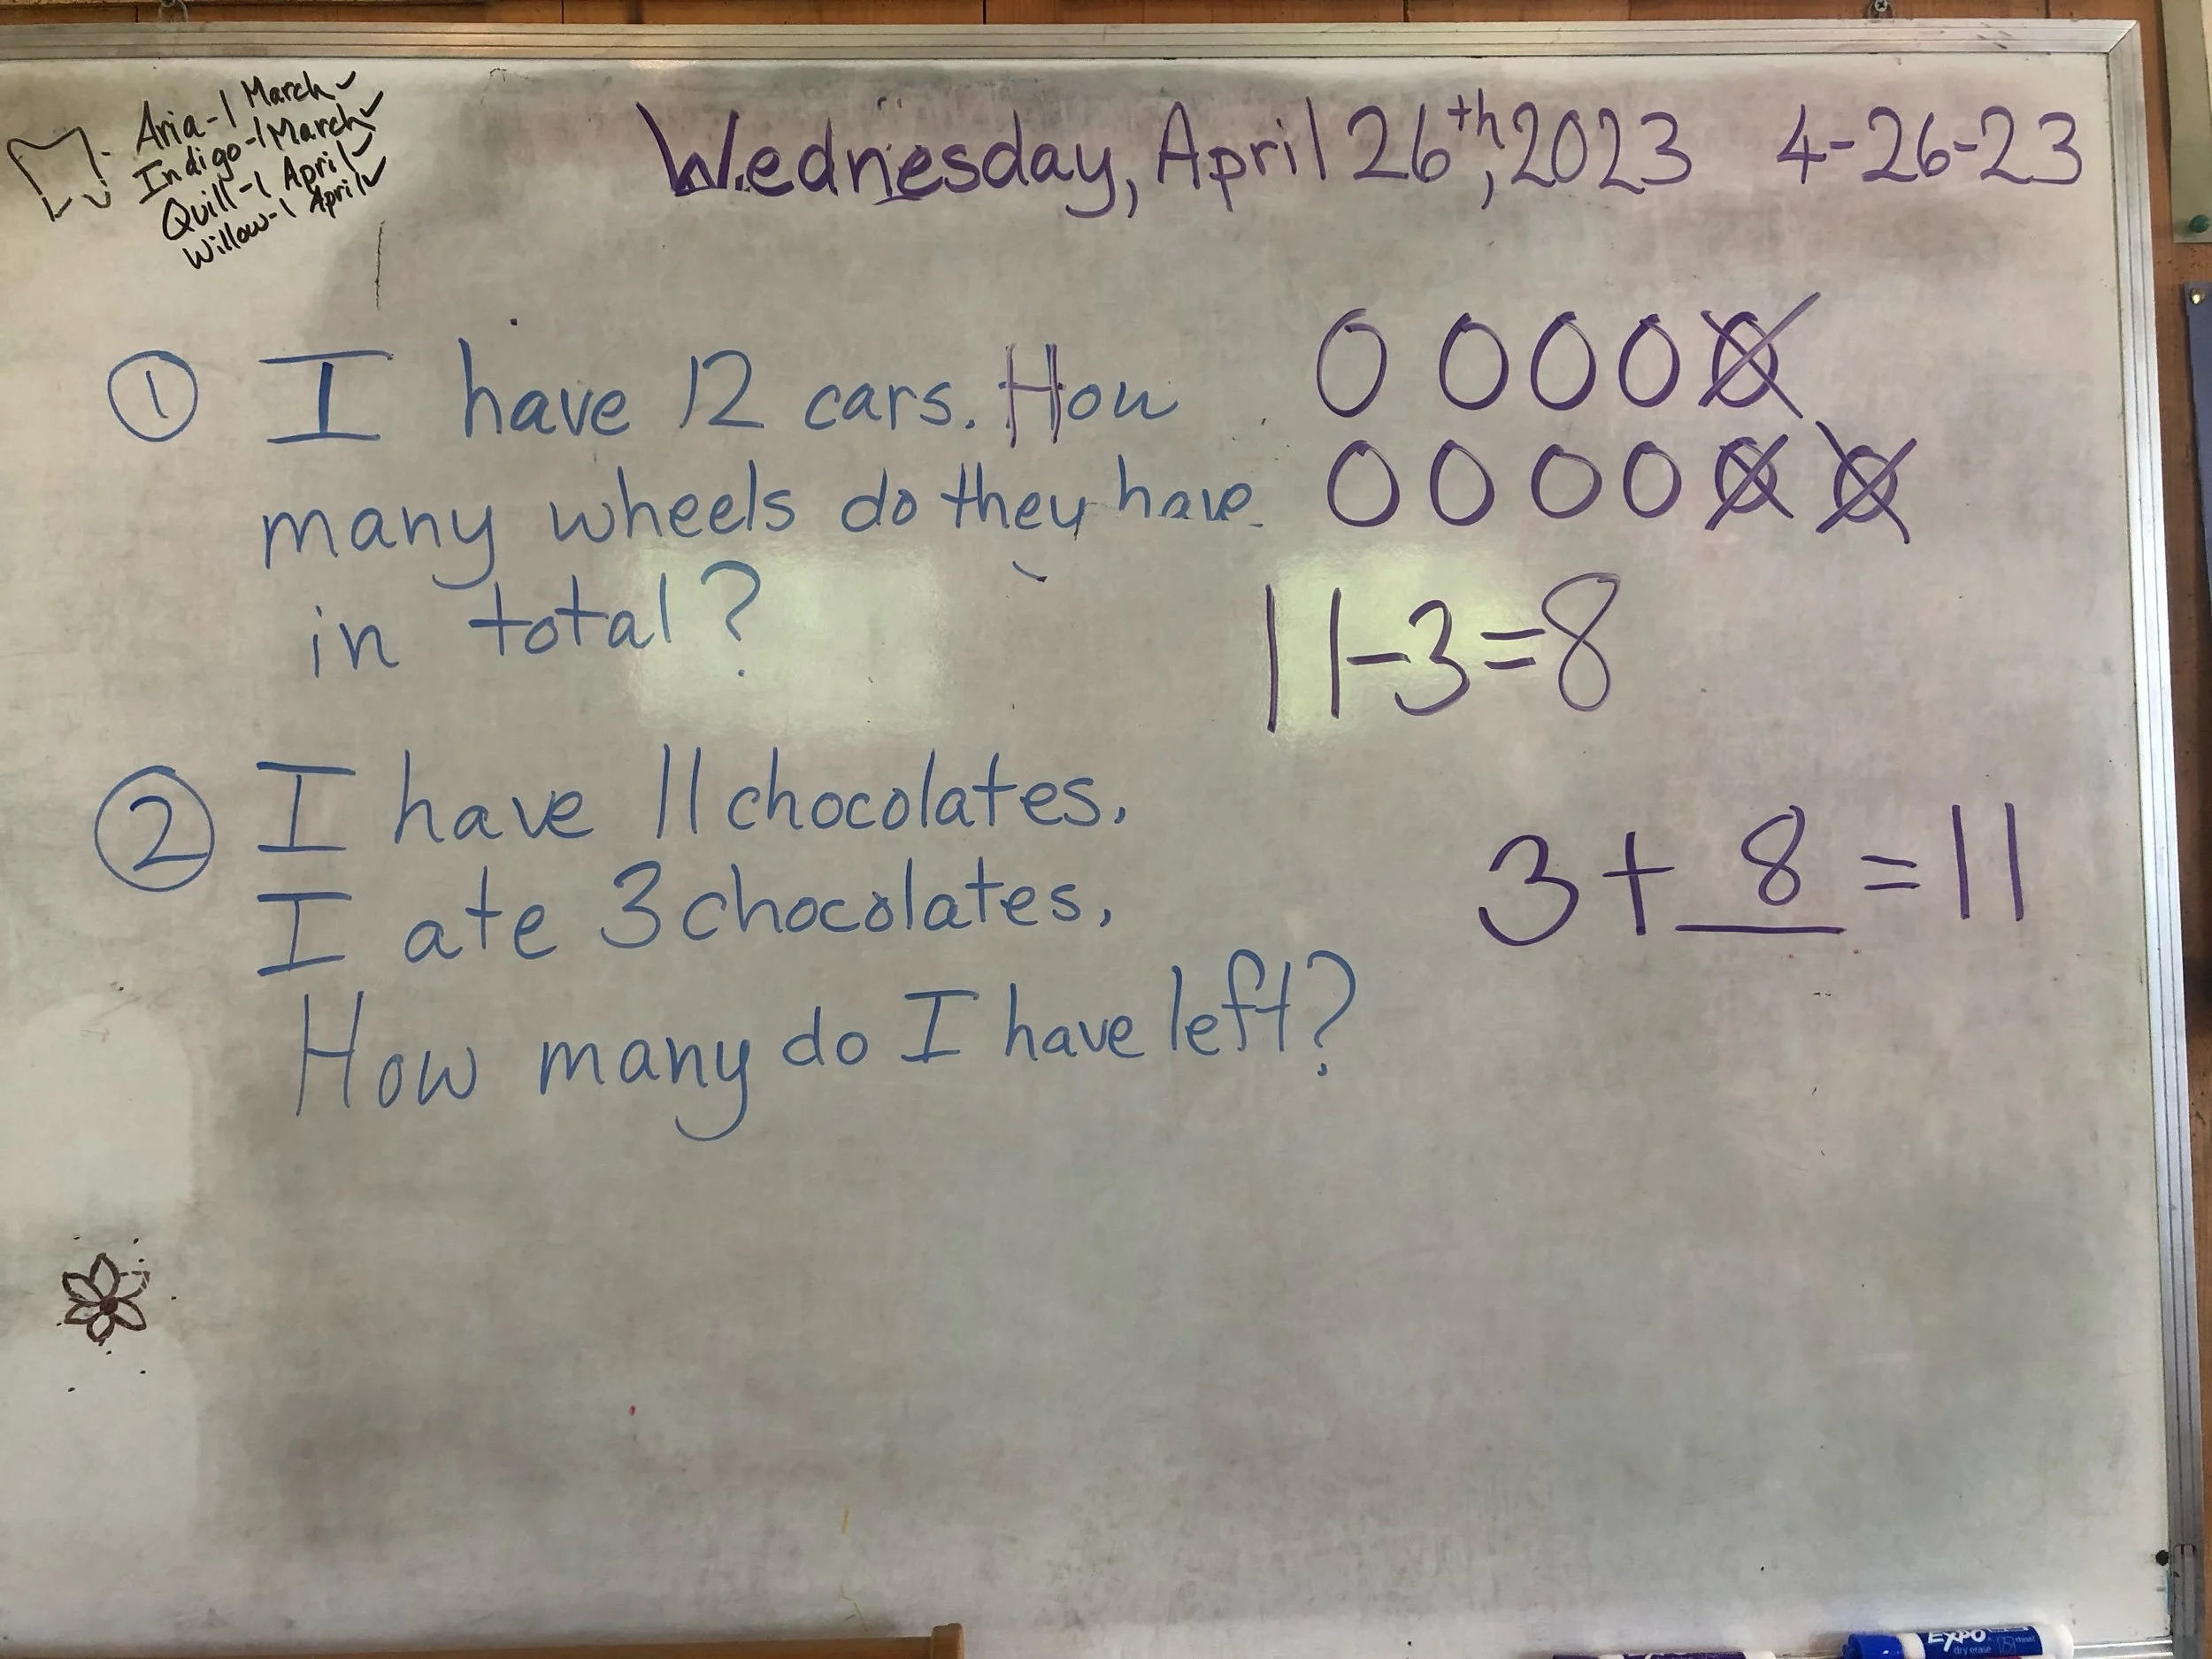 Aria-1 March ✓
Indigo-1 March ✓
Quill-1 April ✓
Willow-1 April ✓
Wednesday, April 26th, 2023 4-26-23
① I have 12 cars. How
many wheels do they have
in total?
0 0 0 0 0
0 0 0 0 0 0
11-3=8
② I have 11 chocolates.
I ate 3 chocolates.
How many do I have left?
3+ 8 =11
EXPO
dry erase